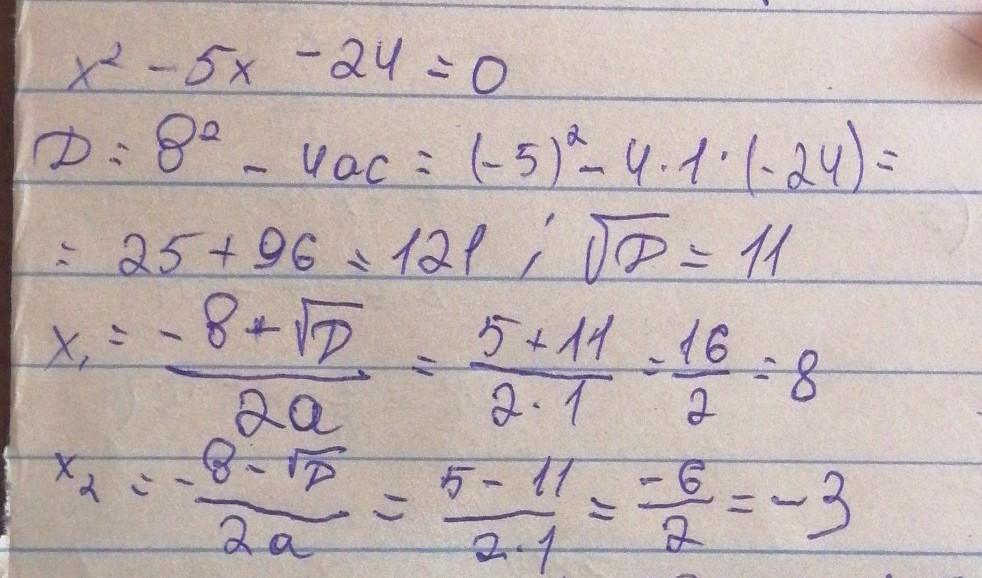 x² - 5x - 24 = 0
D = b² - 4ac = (-5)² - 4·1·(-24) =
= 25 + 96 = 121 ; √D = 11
x₁ = (-b + √D)/(2a) = (5 + 11)/(2·1) = 16/2 = 8
x₂ = (-b - √D)/(2a) = (5 - 11)/(2·1) = -6/2 = -3